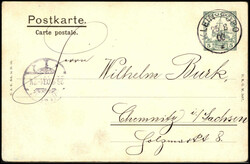 Postkarte.
Carte postale.
Herrn
Wilhelm Burk,
Chemnitz i/Sachsen
Holzmarkt 8